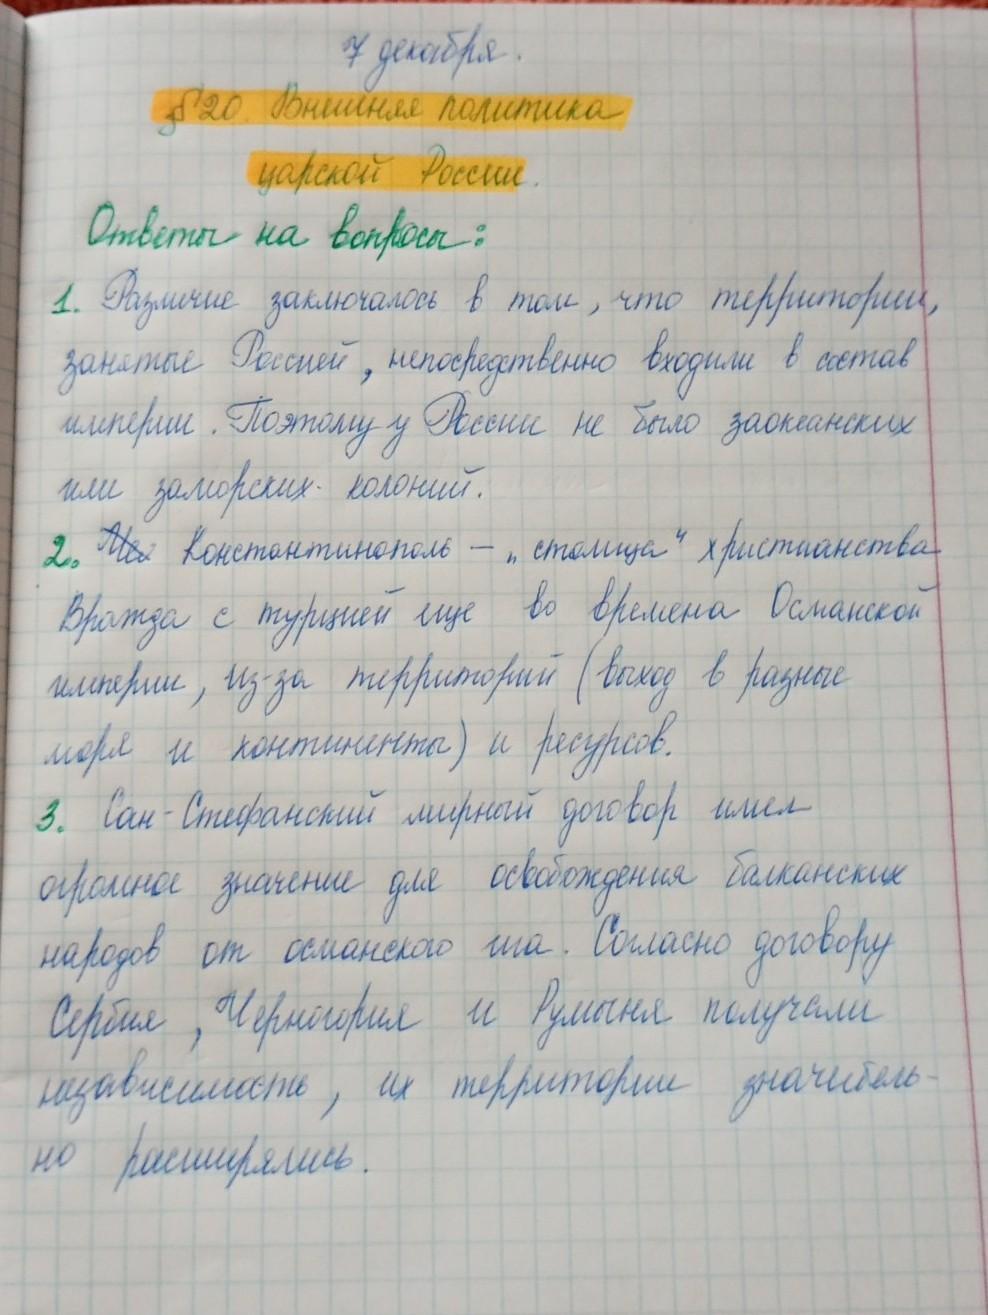 7 декабря.
§20. Внешняя политика
царской России.
Ответы на вопросы:
1. Различие заключалось в том, что территории,
занятые Россией, непосредственно входили в состав
империи. Поэтому у России не было заокеанских
или заморских колоний.
2. Константинополь – „столица" христианства
Вражда с турцией еще во времена Османской
империи, из-за территорий (выход в разные
моря и континенты) и ресурсов.
3. Сан-Стефанский мирный договор имел
огромное значение для освобождения балканских
народов от османского ига. Согласно договору
Сербия, Черногория и Румыния получали
независимость, их территории значитель-
но расширялись.